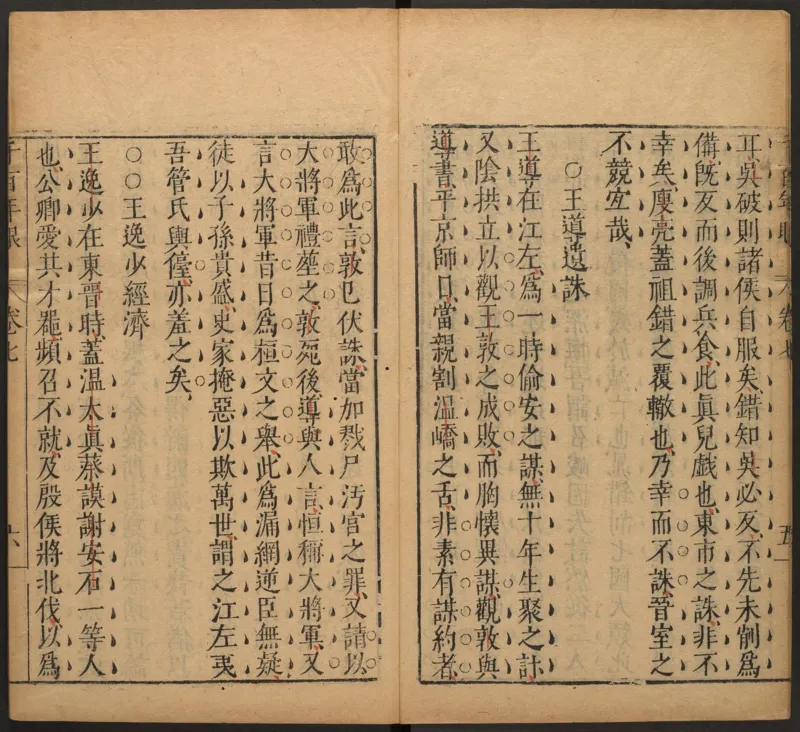 耳、吳破則諸侯自服矣、錯知吳必反、不先未削爲
備、旣反而後調兵食、此眞兒戲也、東市之誅、非不
幸矣、庾亮蓋祖錯之覆轍也、乃幸而不誅、晉室之
不競宜哉、
○王導遺誅
王導在江左、爲一時偷安之謀、無十年生聚之計、
又陰拱立以觀王敦之成敗、而胸懷異謀、觀敦與
導書、平京師日、當親割溫嶠之舌、非素有謀約者、
敢爲此言、敦已伏誅、當加戮尸汚官之罪、又請以
大將軍禮葬之、敦死後、導與人言、恒稱大將軍、又
言大將軍昔日爲桓文之舉、此爲漏網逆臣無疑、
徒以子孫貴盛、史家掩惡以欺萬世、謂之江左夷
吾、管氏輿儓、亦羞之矣、
○○王逸少經濟
王逸少在東晉時、蓋溫太眞蔡謨謝安石一等人
也、公卿愛其才器、頻召不就、及殷侯將北伐、以爲
千百年眼 卷七 五
千百年眼 卷七 六